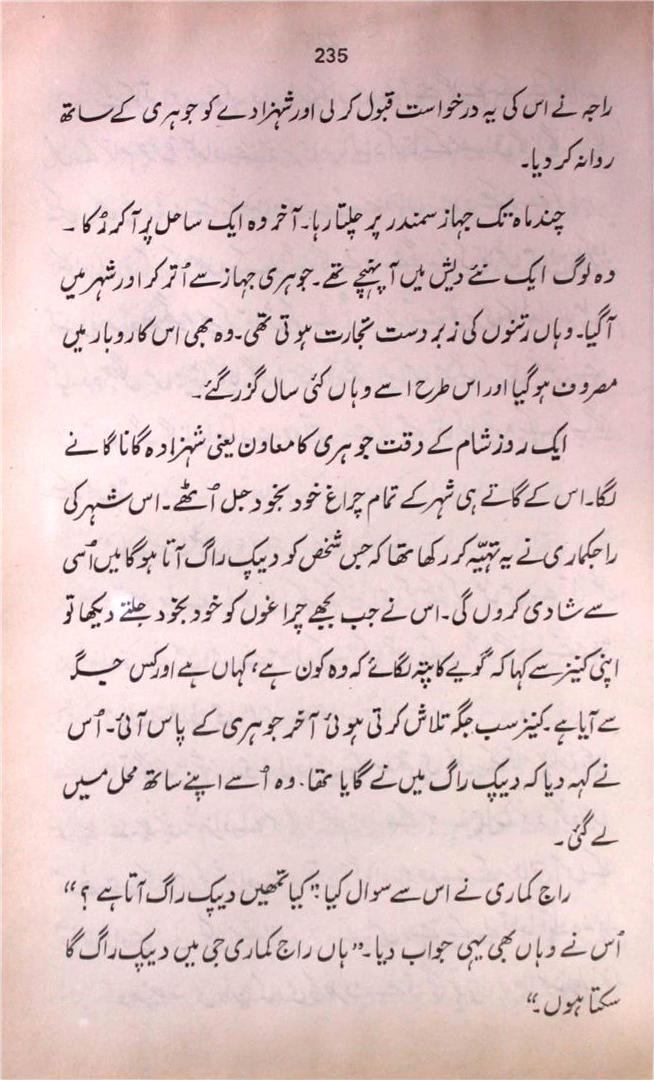 235
راجہ نے اس کی یہ درخواست قبول کر لی اور شہزادے کو جوہری کے ساتھ
روانہ کر دیا۔
چند ماہ تک جہاز سمندر پر چلتا رہا۔ آخر وہ ایک ساحل پر آ کر رُکا ۔
وہ لوگ ایک نئے دیش میں آ پہنچے تھے۔ جوہری جہاز سے اُتر کر اور شہر میں
آگیا۔ وہاں رتنوں کی زبردست تجارت ہوتی تھی۔ وہ بھی اس کاروبار میں
مصروف ہوگیا اور اس طرح اسے وہاں کئی سال گزر گئے ۔
ایک روز شام کے وقت جوہری کا معاون یعنی شہزادہ گانا گانے
لگا۔ اس کے گاتے ہی شہر کے تمام چراغ خود بخود جل اُٹھے۔ اس شہر کی
راجکماری نے یہ تہیّہ کر رکھا تھا کہ جس شخص کو دیپک راگ آتا ہوگا میں اُسی
سے شادی کروں گی۔ اس نے جب بجھے چراغوں کو خود بخود جلتے دیکھا تو
اپنی کنیز سے کہا کہ گویے کا پتہ لگائے کہ وہ کون ہے، کہاں ہے اور کس جگہ
سے آیا ہے۔ کنیز سب جگہ تلاش کرتی ہوئی آخر جوہری کے پاس آئی۔ اُس
نے کہہ دیا کہ دیپک راگ میں نے گایا تھا۔ وہ اُسے اپنے ساتھ محل میں
لے گئی ۔
راج کماری نے اس سے سوال کیا: ”کیا تمھیں دیپک راگ آتا ہے ؟“
اُس نے وہاں بھی یہی جواب دیا۔ ”ہاں راج کماری جی میں دیپک راگ گا
سکتا ہوں۔“